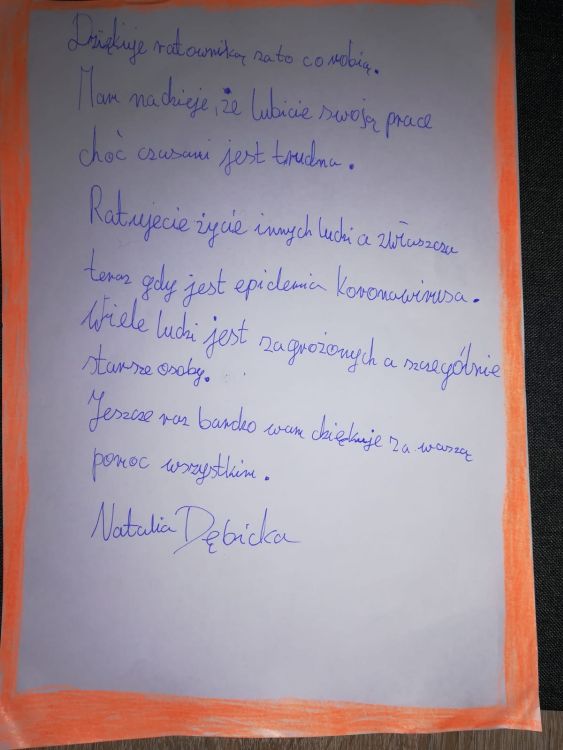 Dziękuje ratowniką za to co robią.
Mam nadzieje, że lubicie swoją prace
choć czasami jest trudna.
Ratujecie życie innych ludzi a zwłaszcza
teraz gdy jest epidemia Koronawirusa.
Wiele ludzi jest zagrożonych a szczególnie
starsze osoby.
Jeszcze raz bardzo wam dziękuje za waszą
pomoc wszystkim.
Natalia Dębicka